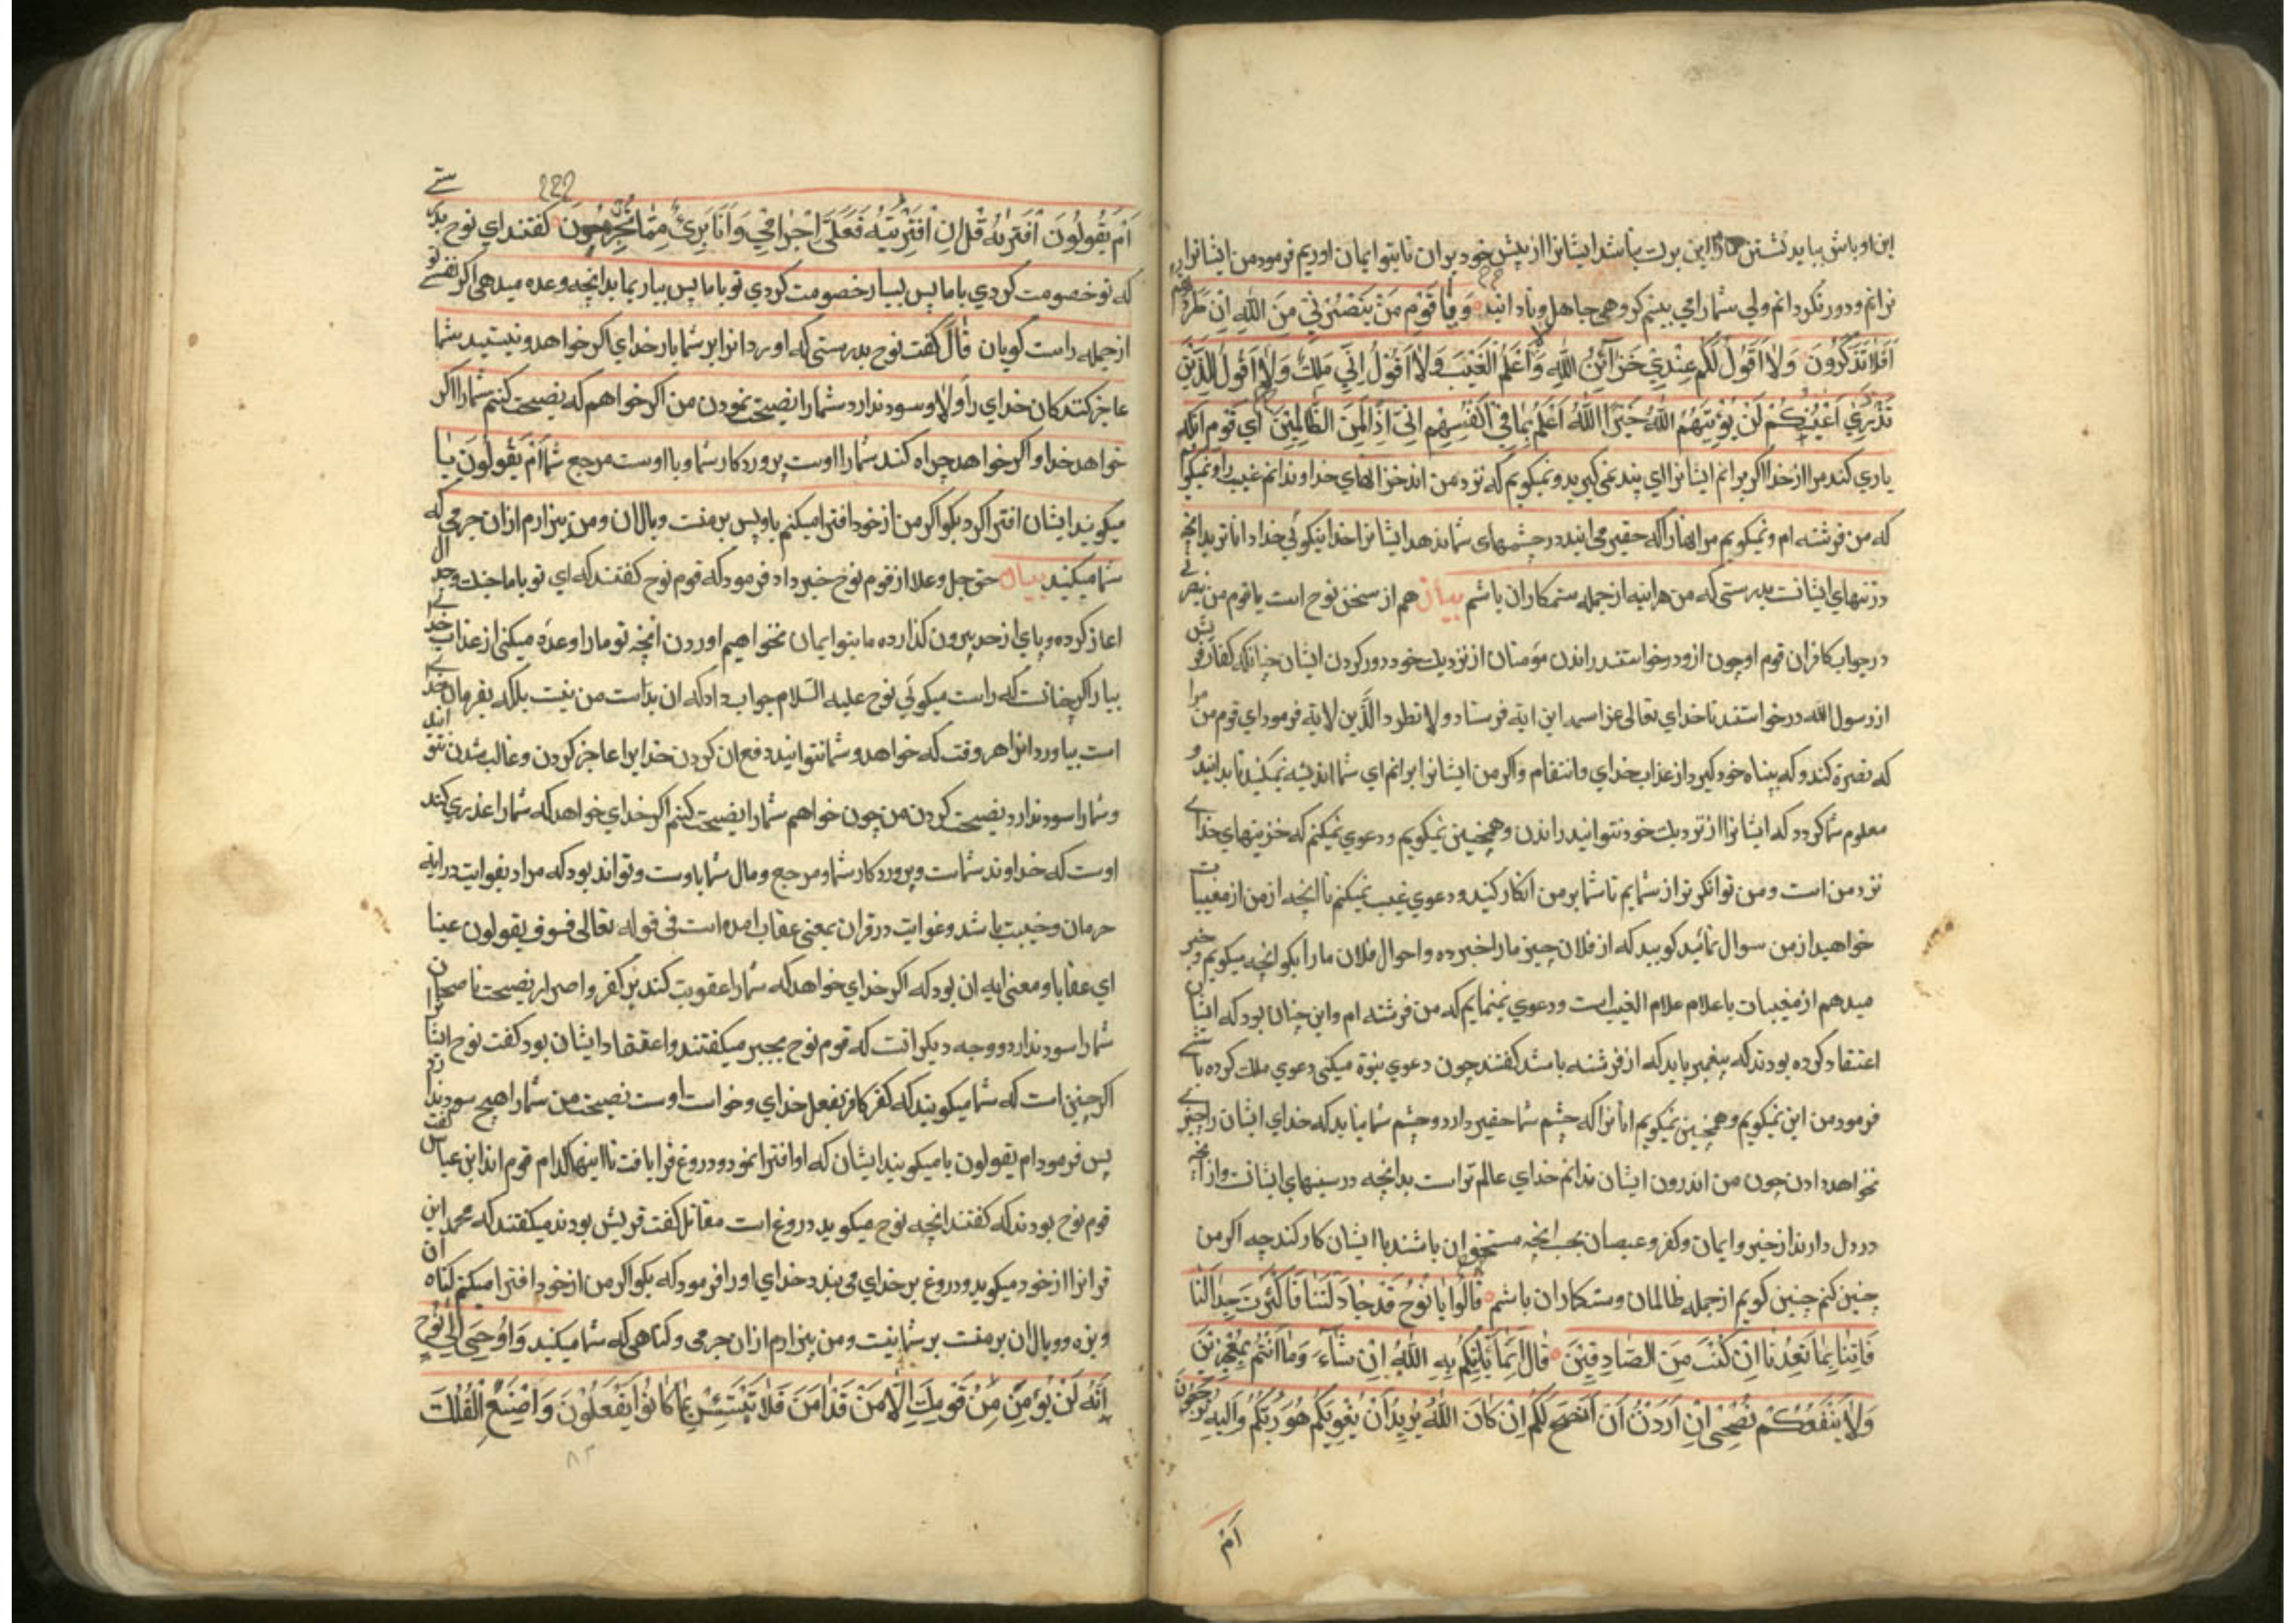 این اوباش بباید نشستن این بدت باشد ایشانرا از پیش خود بران تا بتو ایمان اوریم فرمود من ایشانرا
نرانم و دور نکردانم ولی شما را می بینم کروهی جاهل و نادانید وَیٰا قَوْمِ مَنْ یَنْصُرُنٖی مِنَ اللّٰهِ اِنْ طَرَدْتُهُمْ
اَفَلاٰ تَذَکَّرُونَ وَلاٰ اَقُولُ لَکُمْ عِنْدٖی خَزٰائِنُ اللّٰهِ وَلاٰ اَعْلَمُ الْغَیْبَ وَلاٰ اَقُولُ اِنّٖی مَلَكٌ وَلاٰ اَقُولُ لِلَّذٖینَ
تَزْدَرٖی اَعْیُنُکُمْ لَنْ یُؤْتِیَهُمُ اللّٰهُ خَیْرًا اَللّٰهُ اَعْلَمُ بِمٰا فٖی اَنْفُسِهِمْ اِنّٖی اِذًا لَمِنَ الظّٰالِمٖینَ ای قوم انکه
یاری کند مرا از خدا اکر برانم ایشانرا ای پند نمی کیرید و نمیکویم که نزد من اند خزانهای خدا و ندانم غیب را و نمیکویم
که من فرشته ام و نمیکویم مر انهارا که حقیر می انید در چشمهای شما ندهد ایشانرا خدا نیکوئی خدا داناتر بدانچه
در تنهای ایشانست بدرستی که من هراینه از جمله ستمکاران باشم بیان هم از سخن نوح است یا قوم من ینصرنی
در جواب کافران قوم او چون ازو درخواستند راندن مؤمنان از نزدیك خود دور کردن ایشان چنانکه کفار قریش
از رسول الله درخواستند تا خدای تعالی عز اسمه این ایة فرستاد ولا تطرد الَّذین لایة فرمود ای قوم من مرا
که نصرة کند و که بپناه خود کیرد از عذاب خدای و انتقام و اکر من ایشانرا برانم ای شما اندیشه نمیکنید تا بدانید و
معلوم شما کردد که ایشانرا از نزدیك خود نتوانید راندن و همچنین نمیکویم و دعوی نمیکنم که خزینهای خدای
نزد من است و من توانکرتر از شمایم تا شما بر من انکار کنید و دعوی غیب نمیکنم تا انچه از من از مغیبات
خواهید از من سوال نمائید کویید که از فلان چیز ما را خبر ده و احوال فلان ما را بکو انچه میکویم و خبر
میدهم از مغیبات باعلام علام الغیب است و دعوی نمینمایم که من فرشته ام و این چنان بود که ایشان
اعتقاد کرده بودند که پیغمبر باید که از فرشته باشد کفتند چون دعوی نبوة میکنی دعوی ملك کرده باشی
فرمود من این نمیکویم و همچنین نمیکویم انانرا که چشم شما حقیر دارد و چشم شما نیاید که خدای ایشان را چیزی
نخواهد دادن چون من اندرون ایشان ندانم خدای عالم تر است بدانچه در سینهای ایشانست و از انچه
در دل دارند از خیر و ایمان و کفر و عصیان بحسب انچه مستحق ان باشند با ایشان کار کند چه اکر من
چنین کنم چنین کویم از جمله ظالمان و ستمکاران باشم قٰالُوا یٰا نُوحُ قَدْ جٰادَلْتَنٰا فَاَکْثَرْتَ جِدٰالَنٰا
فَأْتِنٰا بِمٰا تَعِدُنٰا اِنْ کُنْتَ مِنَ الصّٰادِقٖینَ قٰالَ اِنَّمٰا یَأْتٖیکُمْ بِهِ اللّٰهُ اِنْ شٰاءَ وَمٰا اَنْتُمْ بِمُعْجِزٖینَ
وَلاٰ یَنْفَعُکُمْ نُصْحٖی اِنْ اَرَدْتُ اَنْ اَنْصَحَ لَکُمْ اِنْ کٰانَ اللّٰهُ یُرٖیدُ اَنْ یُغْوِیَکُمْ هُوَ رَبُّکُمْ وَاِلَیْهِ تُرْجَعُونَ
اَمْ
۲۲۲
اَمْ یَقُولُونَ افْتَرٰیهُ قُلْ اِنِ افْتَرَیْتُهُ فَعَلَیَّ اِجْرٰامٖی وَاَنَا بَرٖیءٌ مِمّٰا تُجْرِمُونَ کفتند ای نوح بدرستی
که تو خصومت کردی با ما پس بسیار خصومت کردی تو با ما پس بیار بما بدانچه وعده میدهی اکر هستی تو
از جمله راست کویان قٰالَ کفت نوح بدرستی که اورد انرا بر شما بار خدای اکر خواهد و نیستید شما
عاجز کنندکان خدای را وَلاٰ و سود ندارد شما را نصیحت نمودن من اکر خواهم که نصیحت کنم شما را اکر
خواهد خدا و اکر خواهد چراه کند شما را اوست پروردکار شما و با اوست مرجع شما اَمْ یَقُولُونَ یا
میکویند ایشان افترا کرد بکو اکر من از خود افترا میکنم باو پس بر منست وبال ان و من بیزارم از ان جرمی که
شما میکنید بیان حق جل و علا از قوم نوح خبر داد فرمود که قوم نوح کفتند که ای تو با ما جنك و جدال
اغاز کرده و پای از حد بیرون کذارده ما بتو ایمان نخواهیم اوردن انچه تو ما را وعده میکنی از عذاب خدای
بیار اکر چنانست که راست میکوئی نوح علیه السّلام جواب داد که ان بدست من نیست بلکه بفرمان خدای
است بیاورد انرا هر وقت که خواهد و شما نتوانید دفع ان کردن خدایرا عاجز کردن و غالب شدن نتوانید
و شما را سود ندارد نصیحت کردن من چون خواهم شما را نصیحت کنم اکر خدای خواهد که شما را کند
اوست که خداوند شماست و پروردکار شما و مرجع و مال شما باوست و تواند بود که مراد بغوایت در ایه
حرمان و خیبت باشد و غوایت در قران بمعنی عقاب امده است فی قوله تعالی فسوف یقولون غیا
ای عقابا و معنی ایه ان بود که اکر خدای خواهد که شما را عقوبت کند بر کفر و اصرار نصیحت ناصحان
شما را سود ندارد و وجه دیکر انست که قوم نوح بجبر میکفتند و اعتقاد ایشان بود کفت نوح ایشانرا
اکر چنین است که شما میکویید که کفر کافر بفعل خدای و خواست اوست نصیحت من شما را هیچ سود ندارد
پس فرمود ام یقولون یا میکویند ایشان که او افترا نمود و دروغ فرا بافت تا اینها کدام قوم اند ابن عباس کفت
قوم نوح بودند که کفتند انچه نوح میکوید دروغ است مقاتل کفت قریش بودند میکفتند که محمد این
قرانرا از خود میکوید و دروغ بر خدای می بندد خدای او را فرمود که بکو اکر من از خود افترا میکنم کناه ان
و بزه و وبال ان بر منست بر شما نیست و من بیزارم از ان جرمی و کناهی که شما میکنید وَاُوحِیَ اِلیٰ نُوحٍ
اَنَّهُ لَنْ یُؤْمِنَ مِنْ قَوْمِكَ اِلَّا مَنْ قَدْ اٰمَنَ فَلاٰ تَبْتَئِسْ بِمٰا کٰانُوا یَفْعَلُونَ وَاصْنَعِ الْفُلْكَ